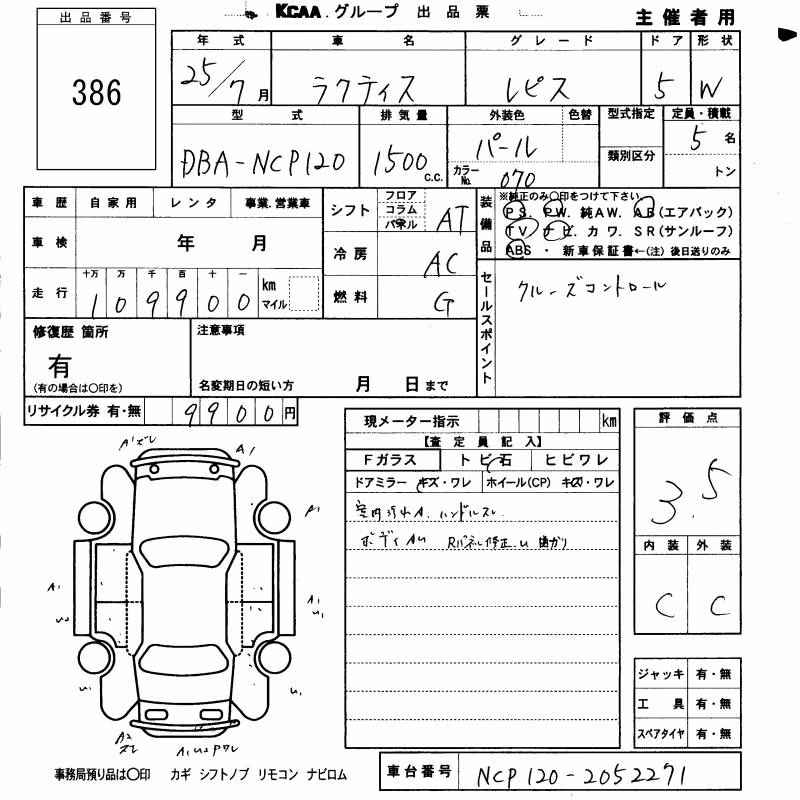 KCAA グループ 出品票
主催者用
出品番号
386
年式 車名 グレード ドア 形状
25/7月 ラクティス レピス 5 W
型式 排気量 外装色 色替 型式指定 定員・積載
DBA-NCP120 1500 c.c. パール 類別区分 5名
カラーNo. 070 トン
車歴 自家用 レンタ 事業.営業車
車検 年 月
走行 十万 万 千 百 十 一 km マイル
109900
シフト フロア コラム パネル AT
冷房 AC
燃料 G
装備品
※純正のみ〇印をつけて下さい
PS. PW. 純AW. AB(エアバック)
TV. ナビ. カワ. SR(サンルーフ)
ABS・新車保証書←(注)後日送りのみ
セールスポイント
クルーズコントロール
修復歴 箇所
有
(有の場合は〇印を)
注意事項
名変期日の短い方 月 日まで
リサイクル券 有・無 9900円
現メーター指示 km
【査定員記入】
Fガラス トビ石 ヒビワレ
ドアミラー キズ・ワレ ホイール(CP) キズ・ワレ
室内汚れA. ハンドルスレ
ボディAU Rパネル修正.U 曲がり
評価点
3.5
内装 外装
C C
ジャッキ 有・無
工具 有・無
スペアタイヤ 有・無
A1ズレ A1
A1
A1 A1
U1
U1 U1
A2ズレ A1U2Pワレ
事務局預り品は〇印 カギ シフトノブ リモコン ナビロム
車台番号 NCP120-2052271